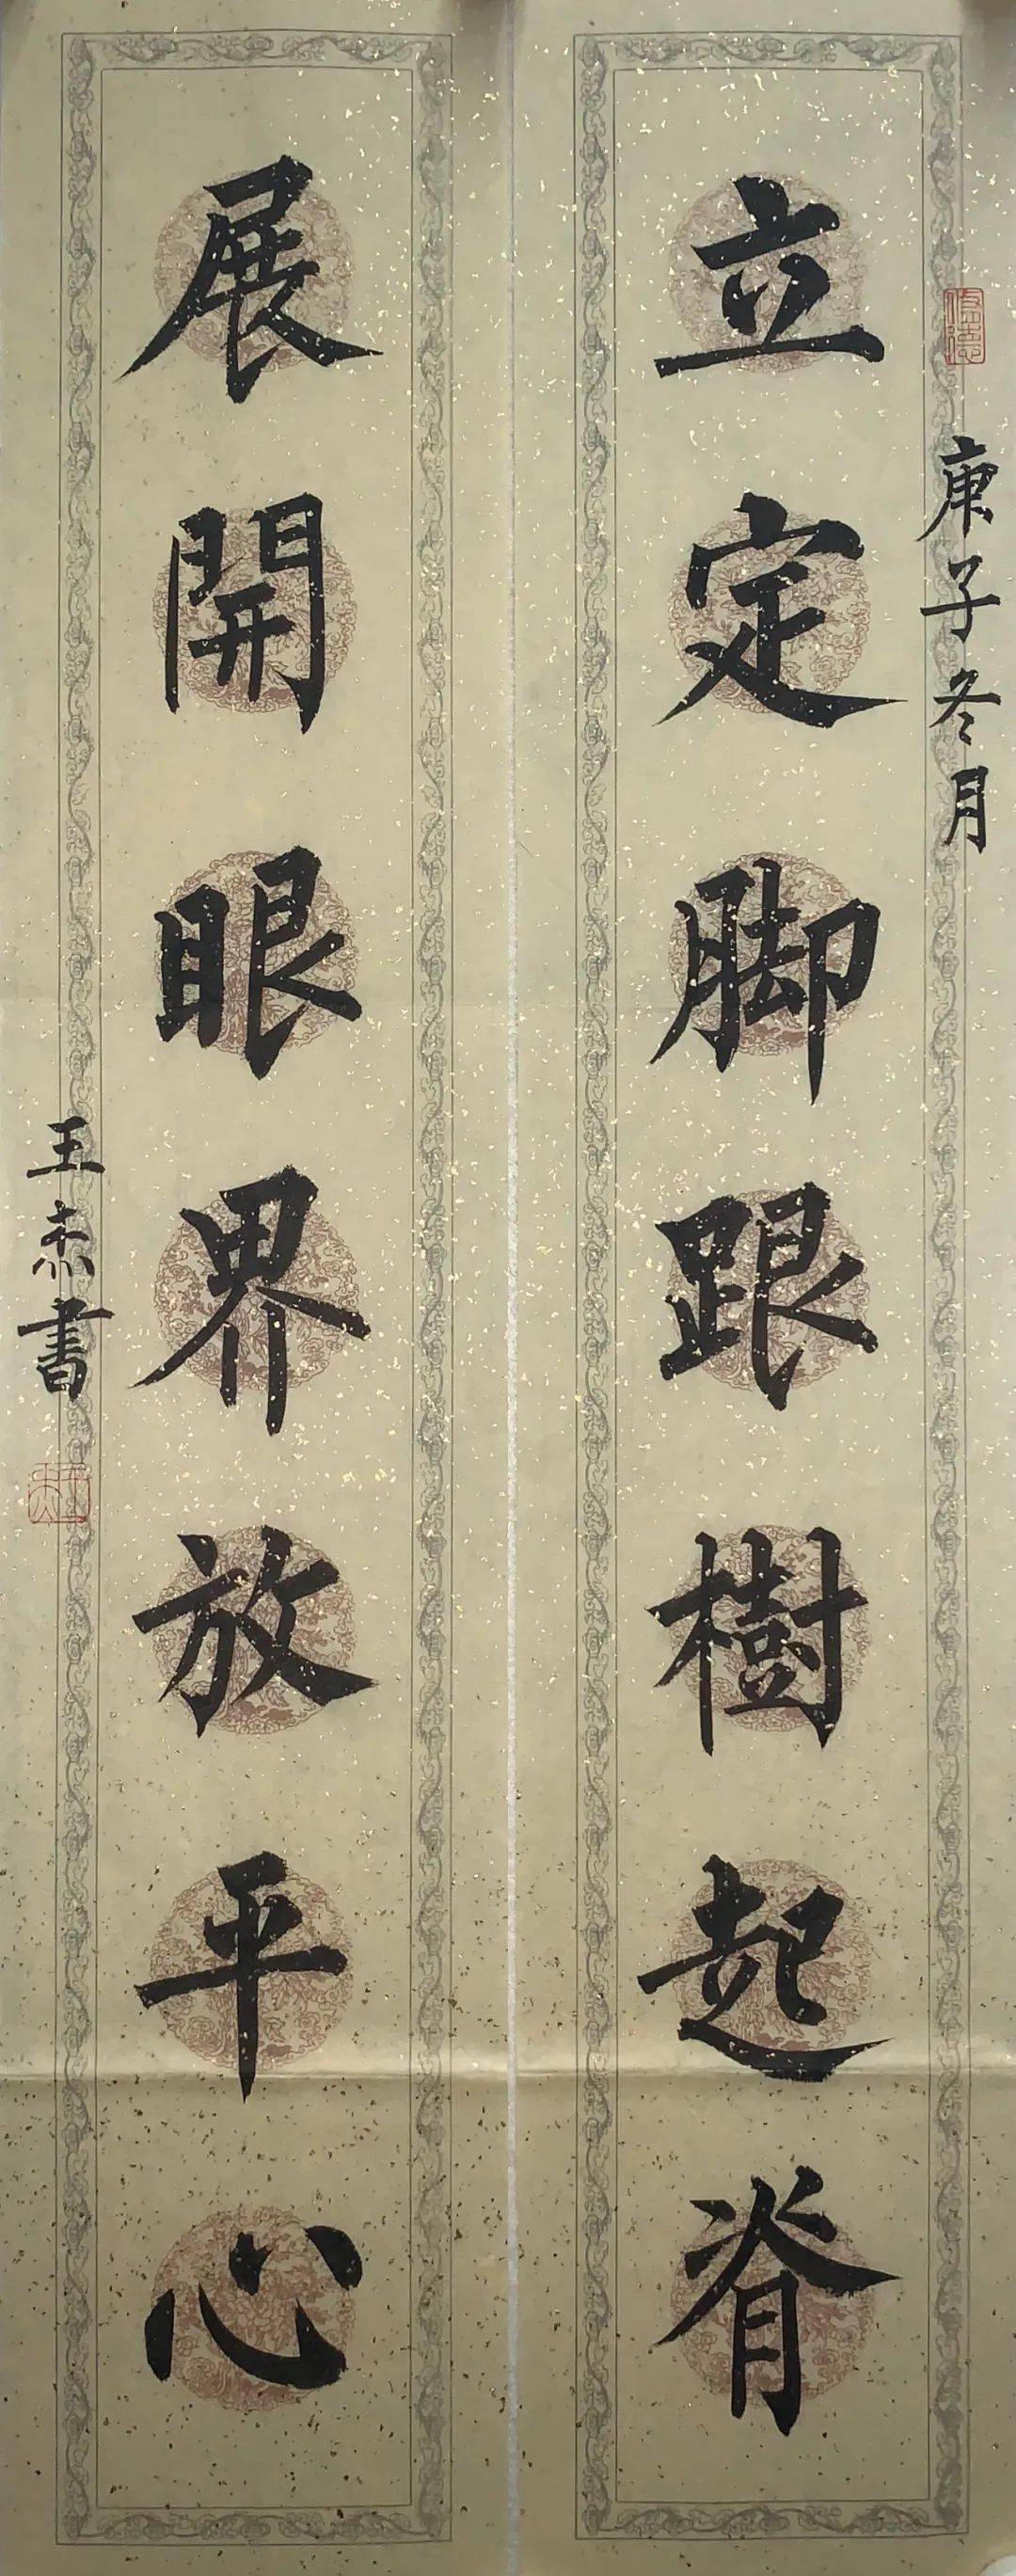 庚子冬月
立定脚跟樹起脊
展開眼界放平心
王赤書